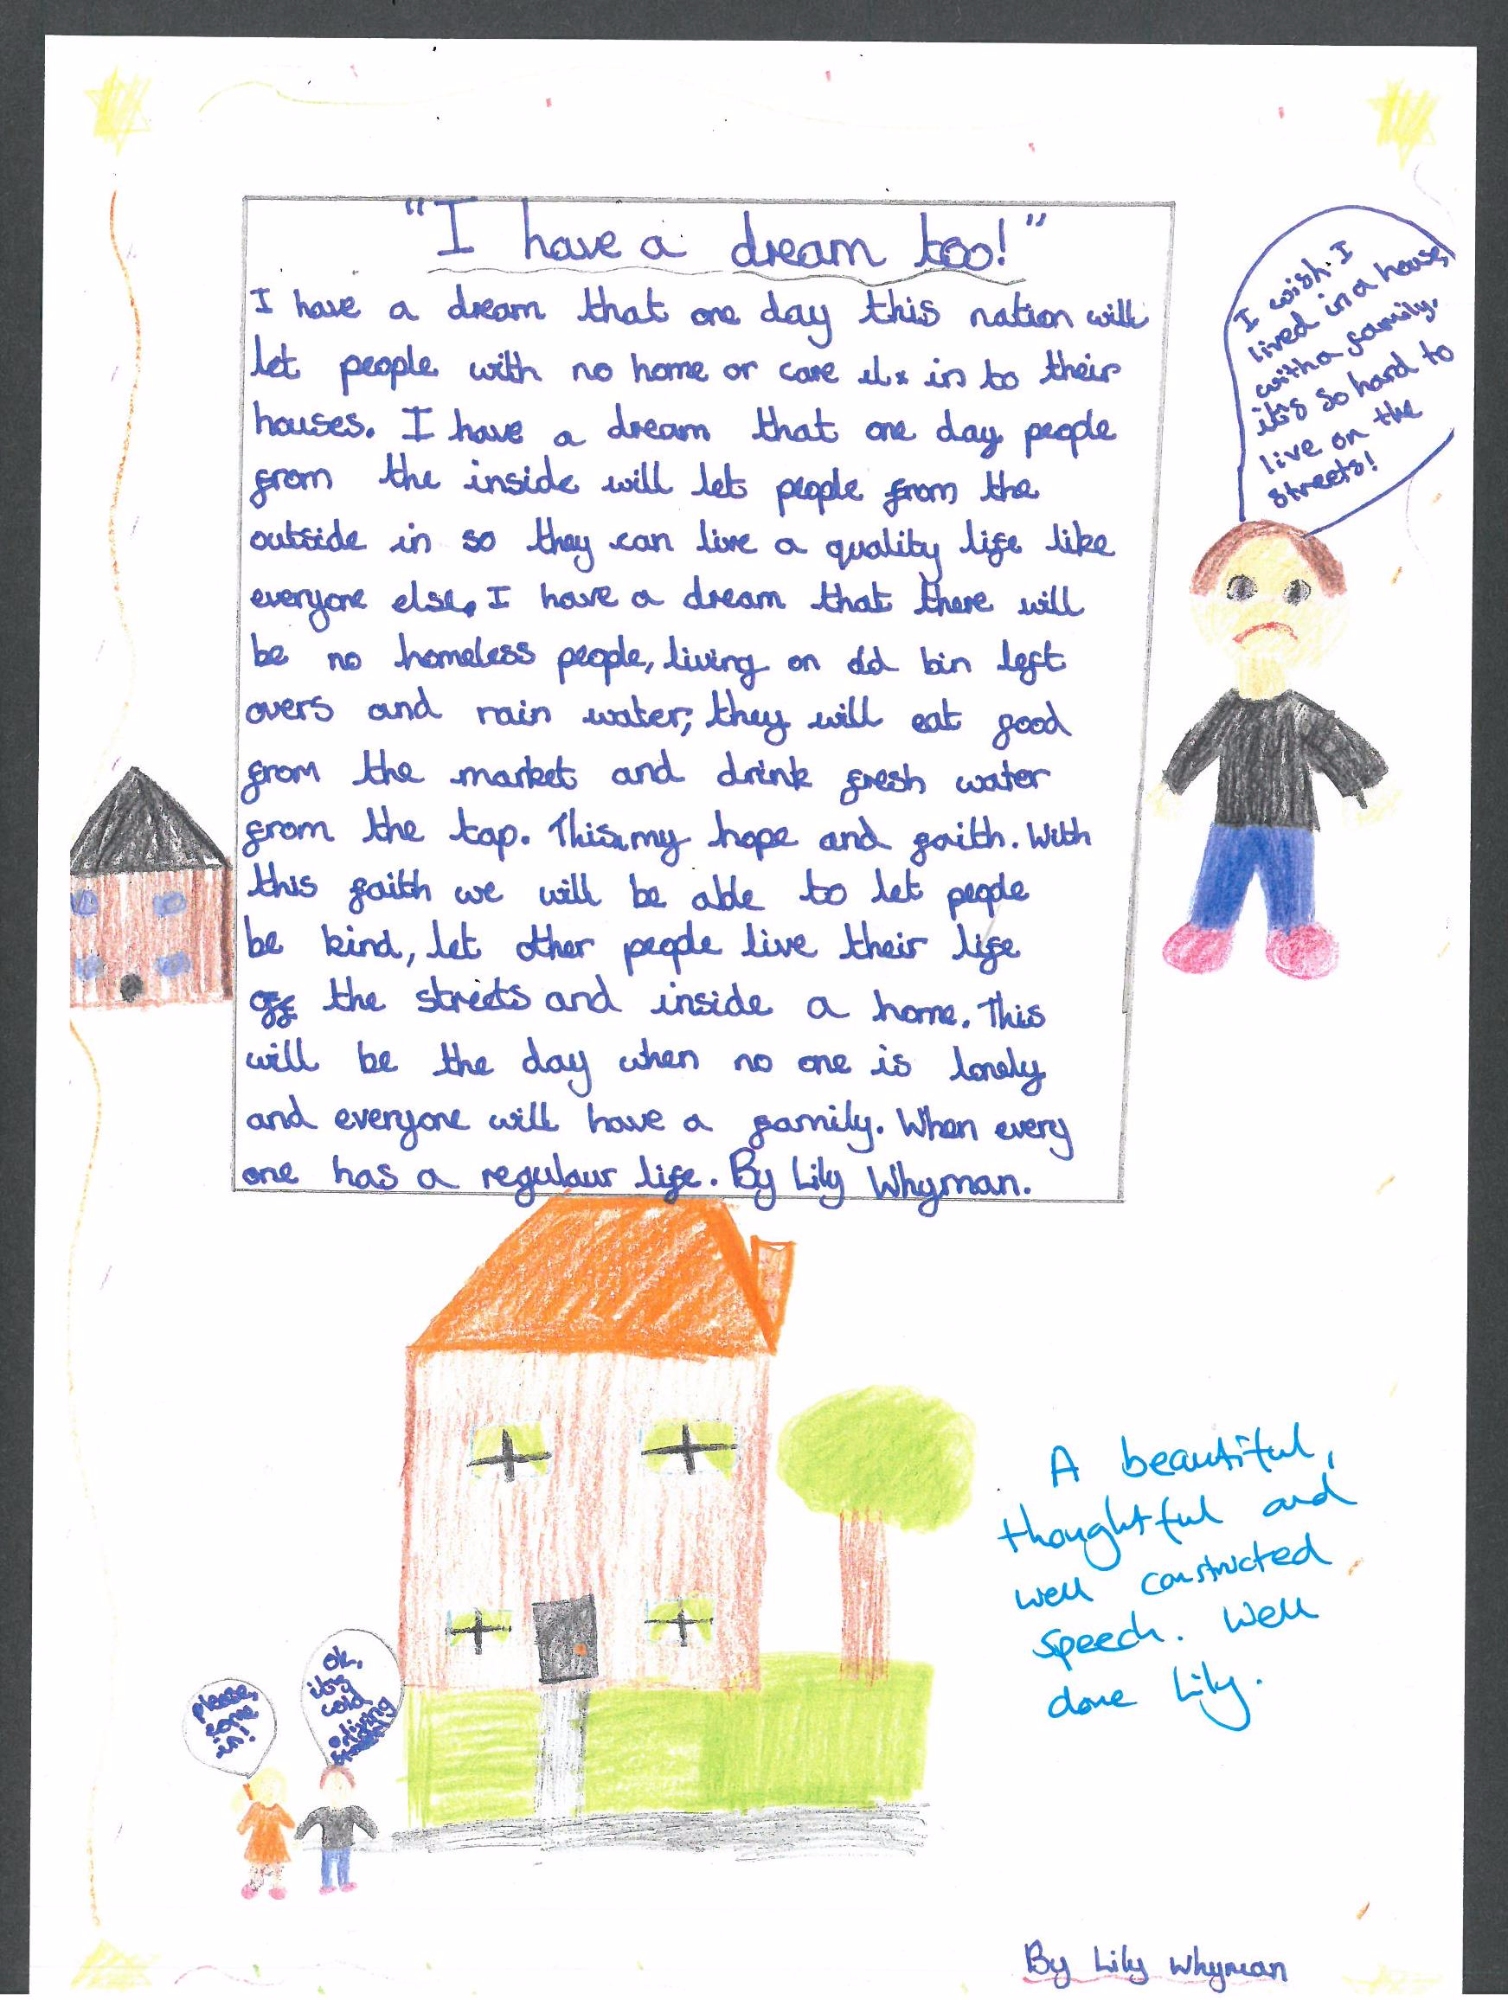 "I have a dream too!"
I have a dream that one day this nation will
let people with no home or care in to their
houses. I have a dream that one day people
from the inside will let people from the
outside in so they can live a quality life like
everyone else. I have a dream that there will
be no homeless people, living on old bin left
overs and rain water; they will eat good
from the market and drink fresh water
from the tap. This my hope and faith. With
this faith we will be able to let people
be kind, let other people live their life
off the streets and inside a home. This
will be the day when no one is lonely
and everyone will have a family. When every
one has a regulaur life. By Lily Whyman.
I wish I
lived in a house,
with a family.
it's so hard to
live on the
streets!
please,
come
in!
Ok,
it's
cold
A beautiful,
thoughtful and
well constructed
speech. Well
done Lily.
By Lily Whyman